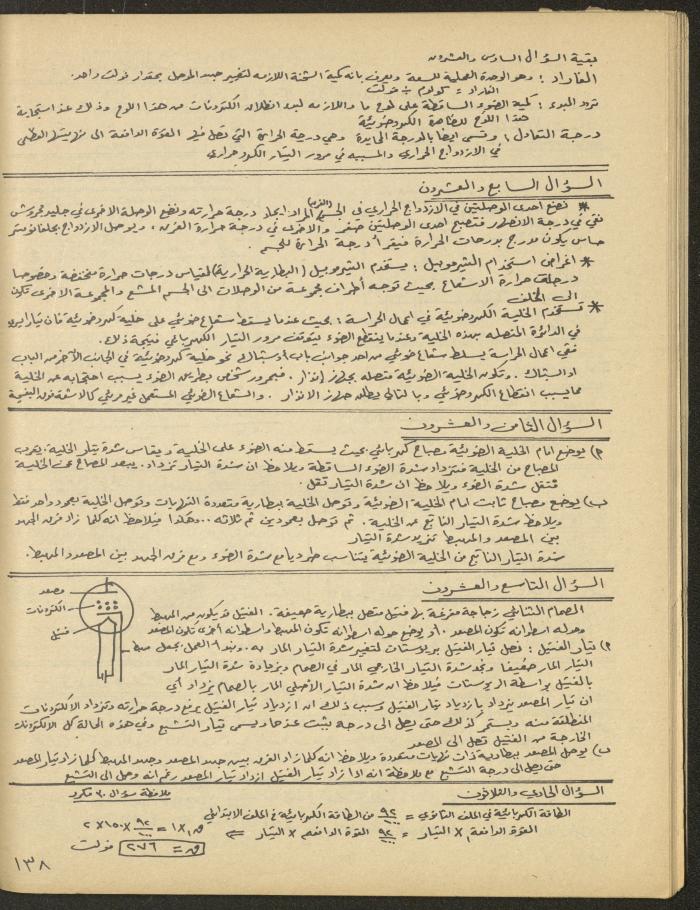 بقية السؤال السادس والعشرون
الفاراد : وهو الوحدة العملية للسعة ويعرف بانه كمية الشحنة اللازمه لتغيير جهد الموصل بمقدار فولت واحد.
الفاراد = كولوم ÷ فولت
تردد المبدئي : كمية الضوء الساقطة على لوح ما واللازمه لبدء انطلاق الكترونات من هذا اللوح وذلك عند استجابة
هذا اللوح للظاهرة الكهروضوئية
درجة التعادل : وتسمى ايضاً بالدرجة المحايدة وهي درجة الحرارة التي تصل فيها القوة الدافعة الى نهايتها العظمى
في الازدواج الحراري والمسببه في مرور التيار الكهروحراري
السؤال السابع والعشرون
* نضع احدى الوصلتين في الازدواج الحراري في الجسم (الفرن) المراد ايجاد درجة حرارته ونضع الوصلة الاخرى في جليد مجروش
نقي في درجة الانصهار فتصبح احدى الوصلتين صفر والاخرى في درجة حرارة الفرن ، ويوصل الازدواج بجلفانومتر
حساس يكون مدرج بدرجات الحرارة فنقرأ درجة الحرارة للجسم .
* اغراض استخدام الثيرموبيل : يستخدم الثيرموبيل (البطارية الحرارية) لقياس درجات حرارة منخفضة وخصوصا
درجات حرارة الاشعاع بحيث توجه أطراف مجموعة من الوصلات الى الجسم المشع والمجموعة الاخرى تكون
الى الخلف
* تستخدم الخلية الكهروضوئية في اعمال الحراسة : بحيث عندما يسقط شعاع ضوئي على خلية كهروضوئية فان تيار يسري
في الدائرة المتصله بهذه الخلية وعندما ينقطع الضوء يتوقف مرور التيار الكهربائي نتيجة ذلك .
ففي اعمال الحراسة يسلط شعاع ضوئي من احد جوانب باب او شباك نحو خلية كهروضوئية في الجانب الآخر من الباب
او الشباك . وتكون الخلية الضوئية متصله بجهاز إنذار . فبمرور شخص بطريق الضوء يسبب احتجابه عن الخلية
مما يسبب انقطاع الكهروضوئي وبالتالي يطلق جهاز الانذار . والشعاع الضوئي المستعمل غير مرئي كالاشعة فوق البنفسجية
السؤال الثامن والعشرون
٢) يوضع امام الخلية الضوئية مصباح كهربائي بحيث يسقط منه الضوء على الخلية ويقاس شدة تيار الخلية . يقرب
المصباح من الخلية فتزداد شدة الضوء الساقطة ويلاحظ ان شدة التيار تزداد . يبعد المصباح عن الخلية
فتقل شدة الضوء ويلاحظ ان شدة التيار تقل .
ب) يوضع مصباح ثابت امام الخلية الضوئية وتوصل الخلية ببطارية متعددة النهايات وتوصل الخلية بعمود واحد فقط
ويلاحظ شدة التيار الناتج عن الخلية . ثم توصل بعمودين ثم ثلاثه ... وهكذا فيلاحظ انه كلما زاد فرق الجهد
بين المصعد والمهبط تزيد شدة التيار
شدة التيار الناتج من الخلية الضوئية يتناسب طرديا مع شدة الضوء ومع فرق الجهد بين المصعد والمهبط .
السؤال التاسع والعشرون
مصعد
الكترونات
فتيل
مهبط
الصمام الثنائي زجاجة مفرغة بها فتيل متصل ببطارية ضعيفة . الفتيل قد يكون من المهبط
وحوله اسطوانه تكون المصعد . أو يوضع حوله اسطوانه تكون المهبط واسطوانه أخرى تكون المصعد
٢) تيار الفتيل : نصل تيار الفتيل بريوستات لتغيير شدة التيار المار به . ونبدأ العمل بجعل
التيار المار ضعيفا ونجد شدة التيار الخارجي المار في الصمام وبزيادة شدة التيار المار
بالفتيل بواسطة الريوستات فيلاحظ ان شدة التيار الأصلي المار بالصمام يزداد أي
ان تيار المصعد يزداد بازدياد تيار الفتيل وسبب ذلك ان ازدياد تيار الفتيل يرفع درجة حرارته وتزداد الالكترونات
المنطلقة منه ويستمر كذلك حتى يصل الى درجة يثبت عندها ويسمى تيار التشبع وفي هذه الحالة كل الالكترونات
الخارجة من الفتيل تصل الى المصعد
ب) يوصل المصعد ببطارية ذات نهايات متعددة ويلاحظ انه كلما زاد الفرق بين جهد المصعد وجهد المهبط كلما زاد تيار المصعد
حتى يصل الى درجة التشبع مع ملاحظة انه اذا زاد تيار الفتيل ازداد تيار المصعد رغم انه وصل الى التشبع
السؤال الحادي والثلاثون
ملاحظة سؤال ٣٠ مكرر
الطاقة الكهربائية في الملف الثانوي = ٩٢/١٠٠ من الطاقة الكهربائية في الملف الابتدائي
القوة الدافعة × التيار = ٩٢/١٠٠ القوة الدافعه × التيار ⇐ ق × ١ = ٩٢/١٠٠ × ١٥٠ × ٢
ق = ٢٧٦ فولت
١٣٨